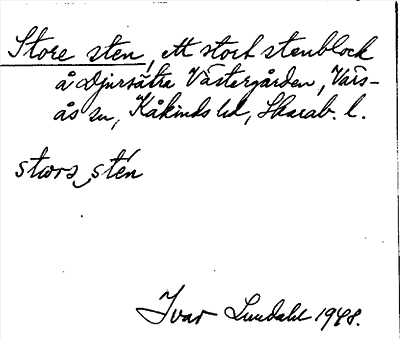 Store sten, ett stort stenblock
å Djursätra Västergården, Vars-
ås sn, Kåkinds hd, Skarab. l.
stors stén
Ivar Lundahl 1948.